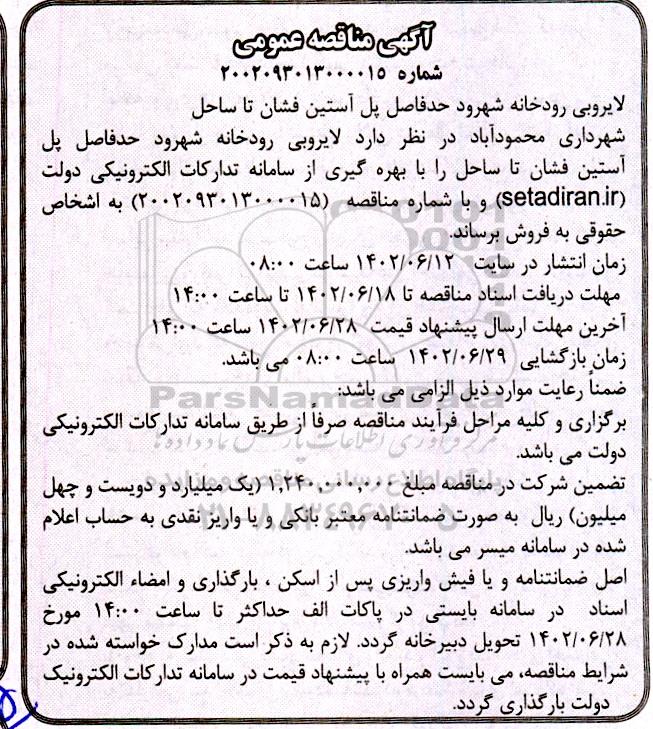 آگهی مناقصه عمومی
شماره ۲۰۰۲۰۹۳۰۱۳۰۰۰۰۱۵
لایروبی رودخانه شهرود حدفاصل پل آستین فشان تا ساحل
شهرداری محمودآباد در نظر دارد لایروبی رودخانه شهرود حدفاصل پل
آستین فشان تا ساحل را با بهره گیری از سامانه تدارکات الکترونیکی دولت
(setadiran.ir) و با شماره مناقصه (۲۰۰۲۰۹۳۰۱۳۰۰۰۰۱۵) به اشخاص
حقوقی به فروش برساند.
زمان انتشار در سایت ۱۴۰۲/۰۶/۱۲ ساعت ۰۸:۰۰
مهلت دریافت اسناد مناقصه تا ۱۴۰۲/۰۶/۱۸ تا ساعت ۱۴:۰۰
آخرین مهلت ارسال پیشنهاد قیمت ۱۴۰۲/۰۶/۲۸ ساعت ۱۴:۰۰
زمان بازگشایی ۱۴۰۲/۰۶/۲۹ ساعت ۰۸:۰۰ می باشد.
ضمناً رعایت موارد ذیل الزامی می باشد:
ParsNamadData
برگزاری و کلیه مراحل فرآیند مناقصه صرفاً از طریق سامانه تدارکات الکترونیکی
دولت می باشد.
تضمین شرکت در مناقصه مبلغ ۱,۲۴۰,۰۰۰,۰۰۰ (یک میلیارد و دویست و چهل
میلیون) ریال به صورت ضمانتنامه معتبر بانکی و یا واریز نقدی به حساب اعلام
شده در سامانه میسر می باشد.
اصل ضمانتنامه و یا فیش واریزی پس از اسکن ، بارگذاری و امضاء الکترونیکی
اسناد در سامانه بایستی در پاکات الف حداکثر تا ساعت ۱۴:۰۰ مورخ
۱۴۰۲/۰۶/۲۸ تحویل دبیرخانه گردد. لازم به ذکر است مدارک خواسته شده در
شرایط مناقصه، می بایست همراه با پیشنهاد قیمت در سامانه تدارکات الکترونیک
دولت بارگذاری گردد.